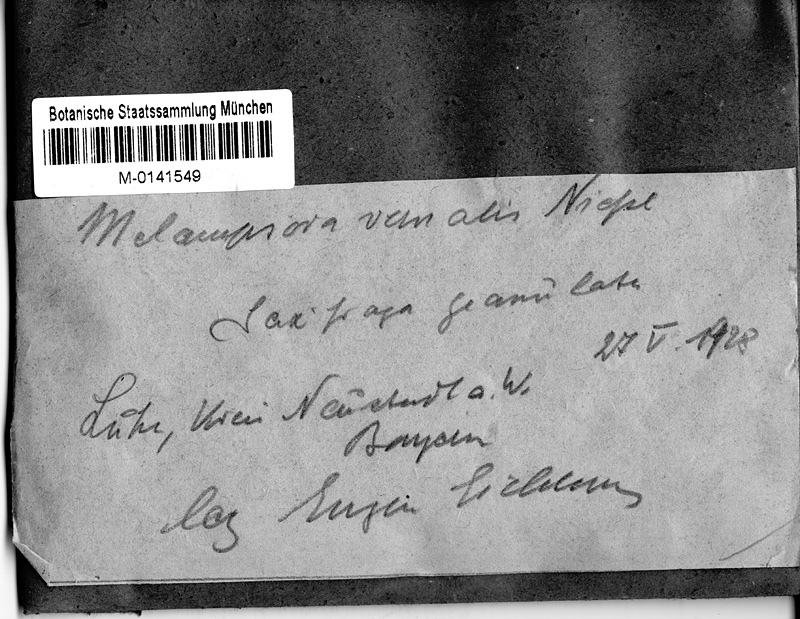 Botanische Staatssammlung München
M-0141549
Melampsora vernalis Niessl
Saxifraga granulata
27 V. 1928
Luhe, Kreis Neustadt a. W.
Bayern
leg Eugen